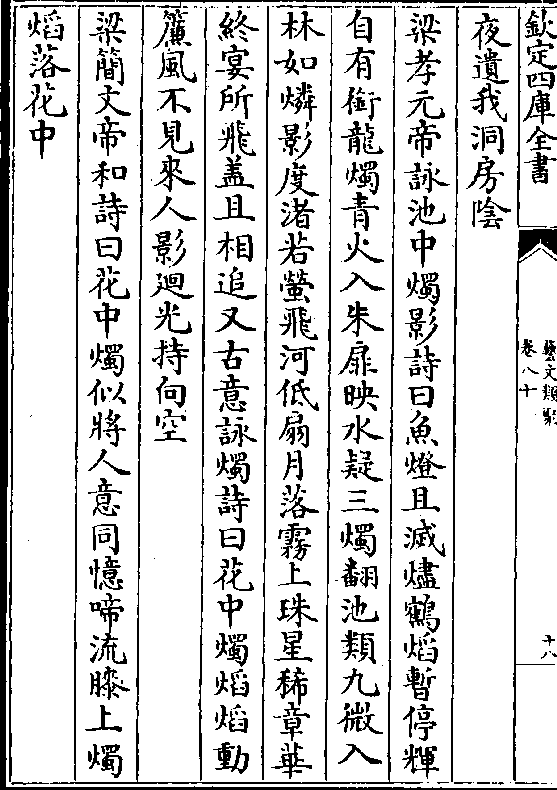 欽定四庫全書
藝文類聚
卷八十
十八
夜遺我洞房陰
梁孝元帝詠池中燭影詩曰魚燈且滅燼鶴熖暫停輝
自有銜龍燭青火入朱扉映水疑三燭翻池類九微入
林如燐影度渚若螢飛河低扇月落霧上珠星稀章華
終宴所飛葢且相追又古意詠燭詩曰花中燭熖熖動
簾風不見來人影廻光持向空
梁簡文帝和詩曰花中燭似將人意同憶啼流膝上燭
熖落花中